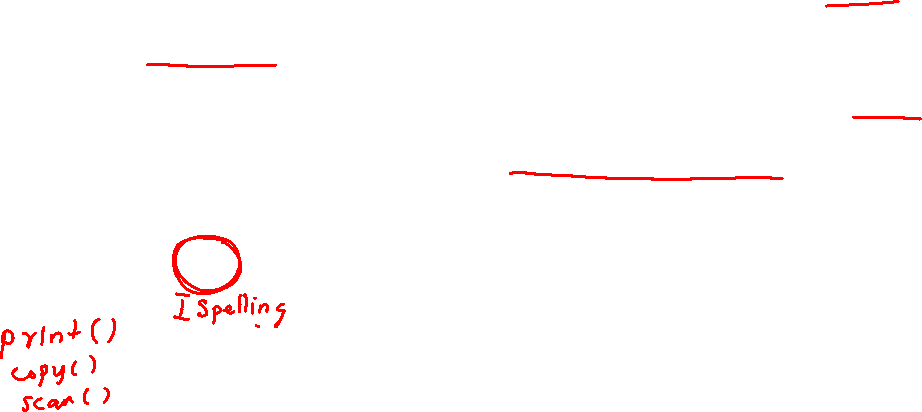 ISpelling
print()
copy()
scan()